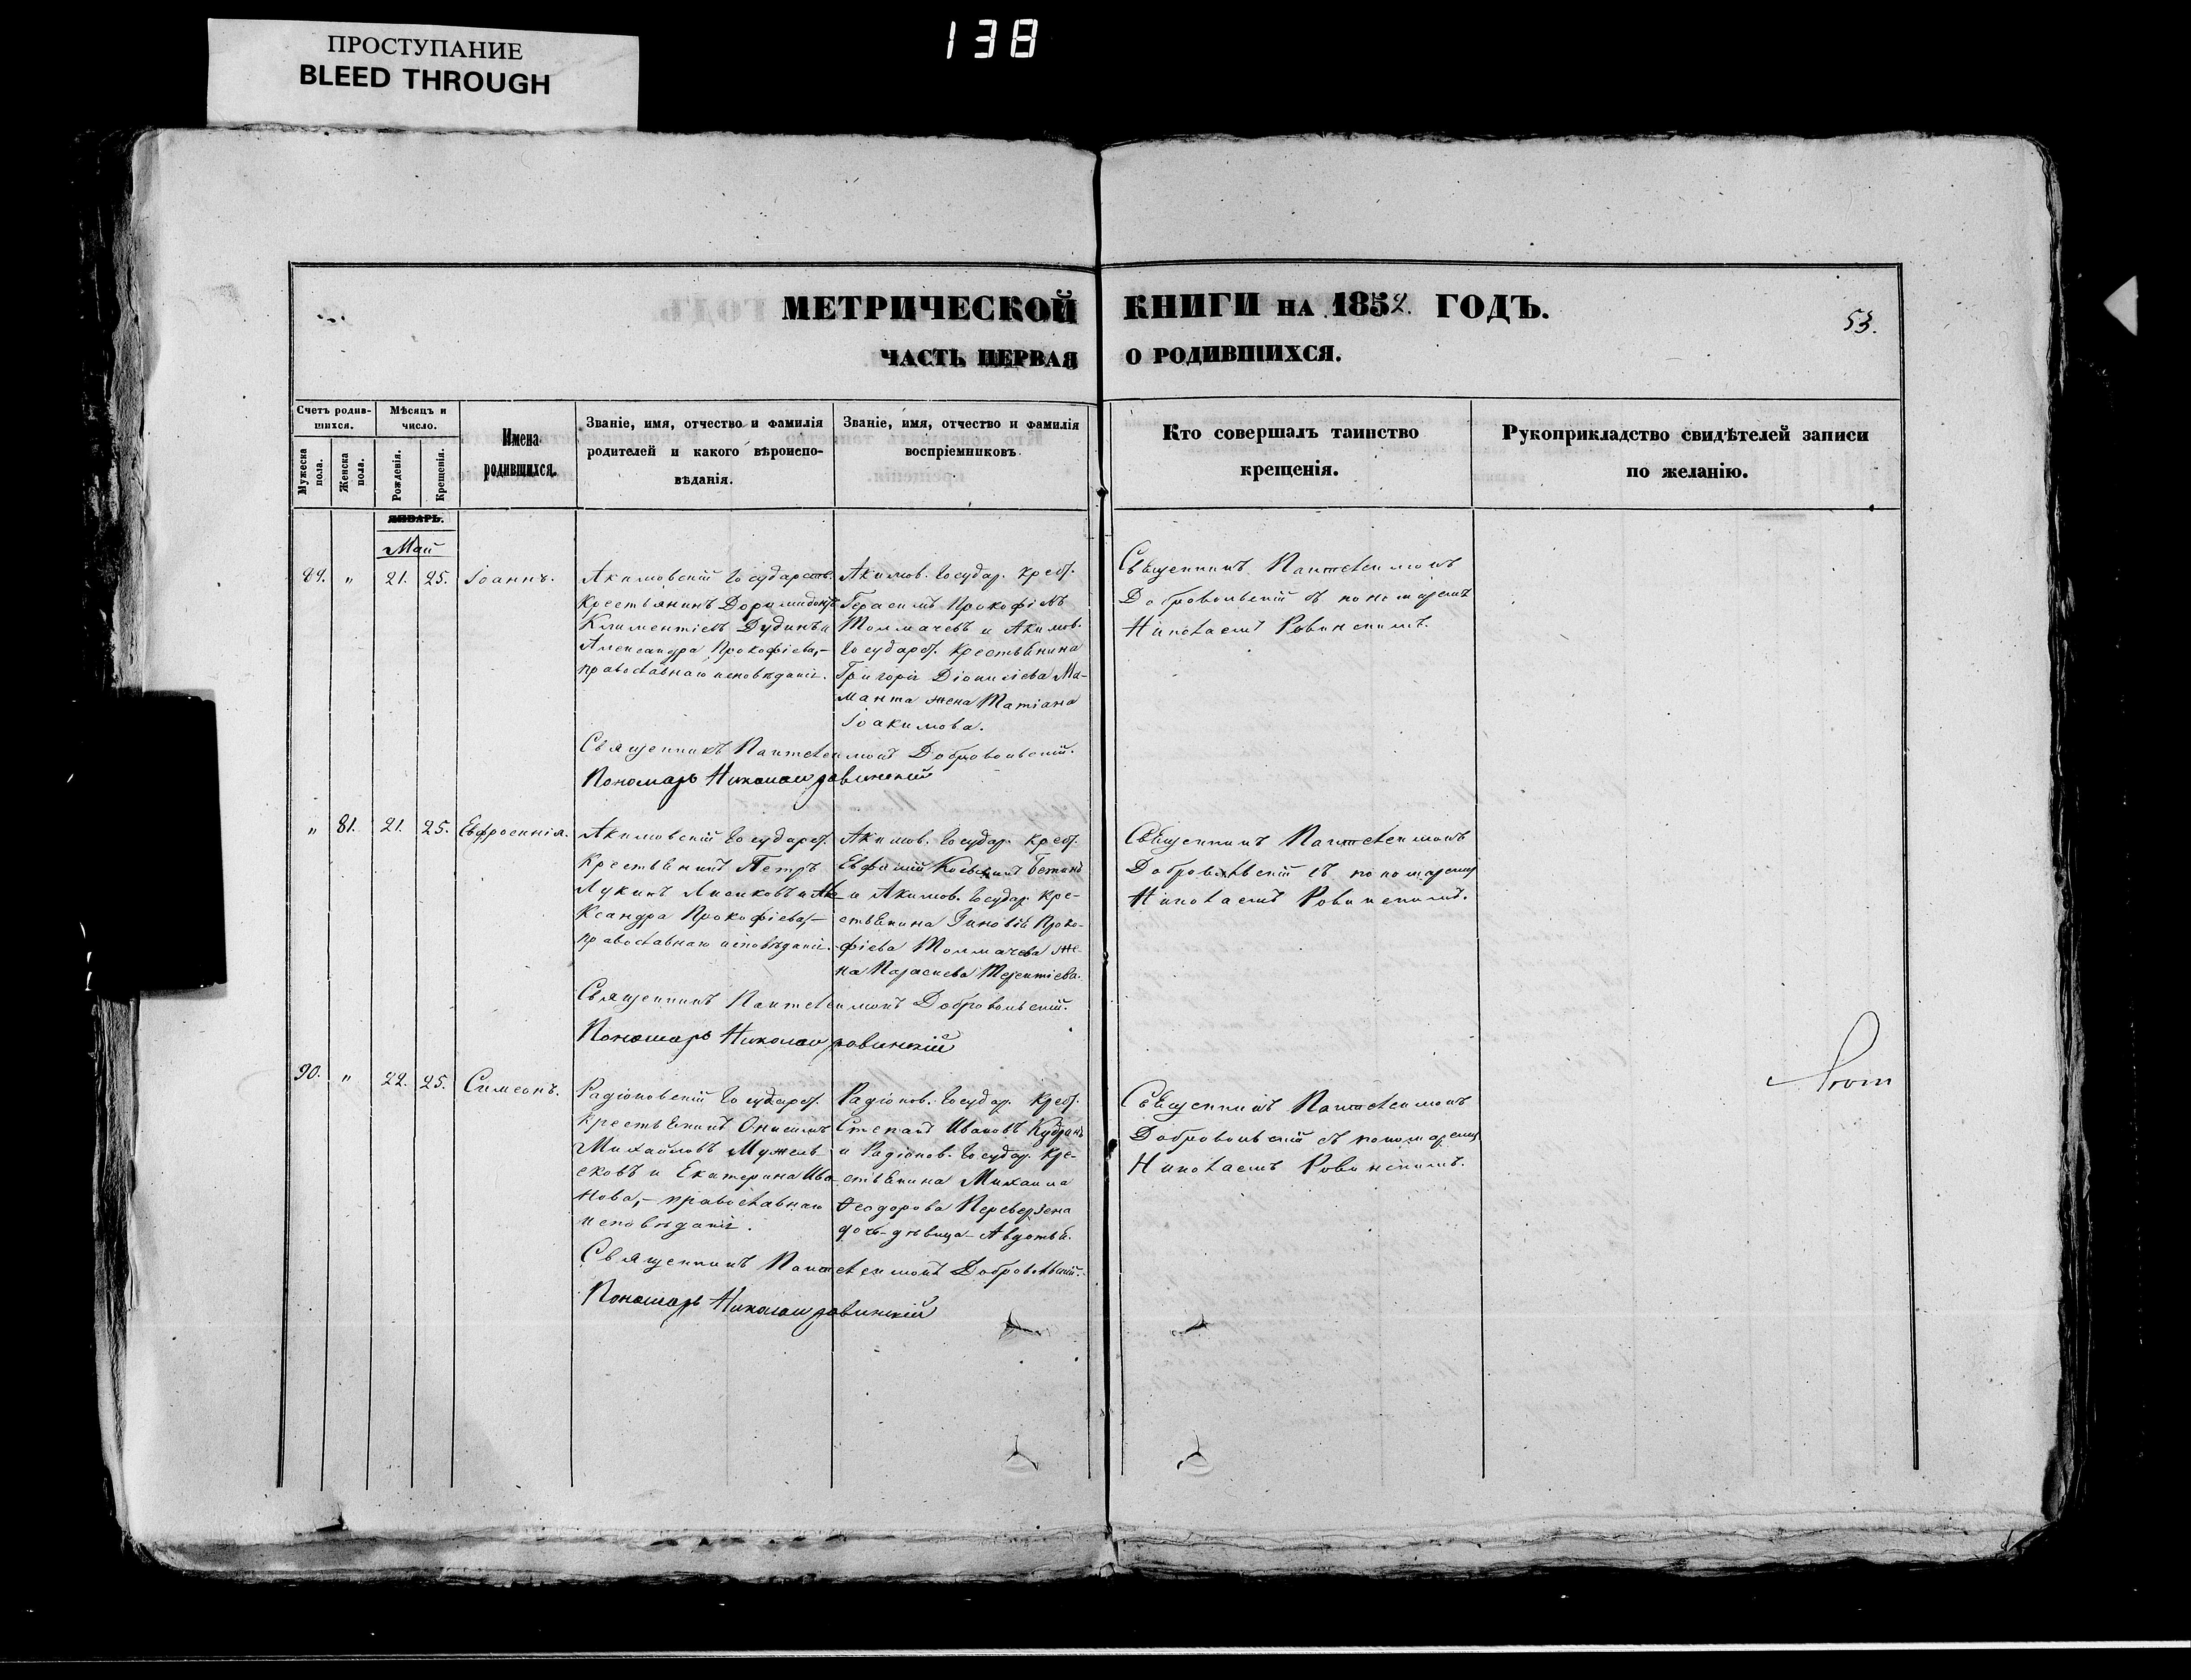 138
ПРОСТУПАНИЕ
BLEED THROUGH
МЕТРИЧЕСКОЙ КНИГИ НА 1852. ГОДЪ.
53.
ЧАСТЬ ПЕРВАЯ О РОДИВШИХСЯ.
Счетъ родив-
шихся.
Мужеска пола.
Женска пола.
Мѣсяцъ и
число.
Рожденія.
Крещенія.
Имена
родившихся.
Званіе, имя, отчество и фамилія
родителей и какого вѣроиспо-
вѣданія.
Званіе, имя, отчество и фамилія
воспріемниковъ.
Кто совершалъ таинство
крещенія.
Рукоприкладство свидѣтелей записи
по желанію.
ЯНВАРЬ.
Май
89. " 21. 25. Іоаннъ.
Акимовскій Государств.
Крестьянинъ
Климентіевъ Дудинъ и
Александра Прокофіева,-
православнаго исповѣданія.
Акимов. Государ. крест.
Герасимъ Прокофіевъ
Толмачевъ и Акимов.
Государст. крестьянина
Григорія Діонисіева Ма-
манта жена Татіана
Іоакимова.
Священникъ Пантелеимонъ
Добровольскій съ пономаремъ
Николаемъ Ровинскимъ.
Священникъ Пантелеимонъ Добровольскій.
Пономарь Николай Ровинскій
" 81. 21. 25. Евфросинія.
Акимовскій Государст.
Крестьянинъ Петръ
Лукинъ Лисиковъ и Але-
ксандра Прокофіева,-
православнаго исповѣданія.
Акимов. Государ. крест.
Евфимій
и Акимов. Государ. кре-
стьянина Зиновія Проко-
фіева Толмачева же-
на Параскева Терентіева.
Священникъ Пантелеимонъ
Добровольскій съ пономаремъ
Николаемъ Ровинскимъ.
Священникъ Пантелеимонъ Добровольскій.
Пономарь Николай Ровинскій
90. " 22. 25. Симеонъ.
Радіоновскій Государст.
Крестьянинъ Онисимъ
Михайловъ
и Екатерина Ива-
нова,- православнаго
исповѣданія.
Радіонов. Государ. крест.
Стефанъ Ивановъ
и Радіонов. Государ. кре-
стьянина Михаила
Ѳеодорова
дочь-дѣвица-Авдотья.
Священникъ Пантелеимонъ
Добровольскій съ пономаремъ
Николаемъ Ровинскимъ.
Священникъ Пантелеимонъ Добровольскій.
Пономарь Николай Ровинскій